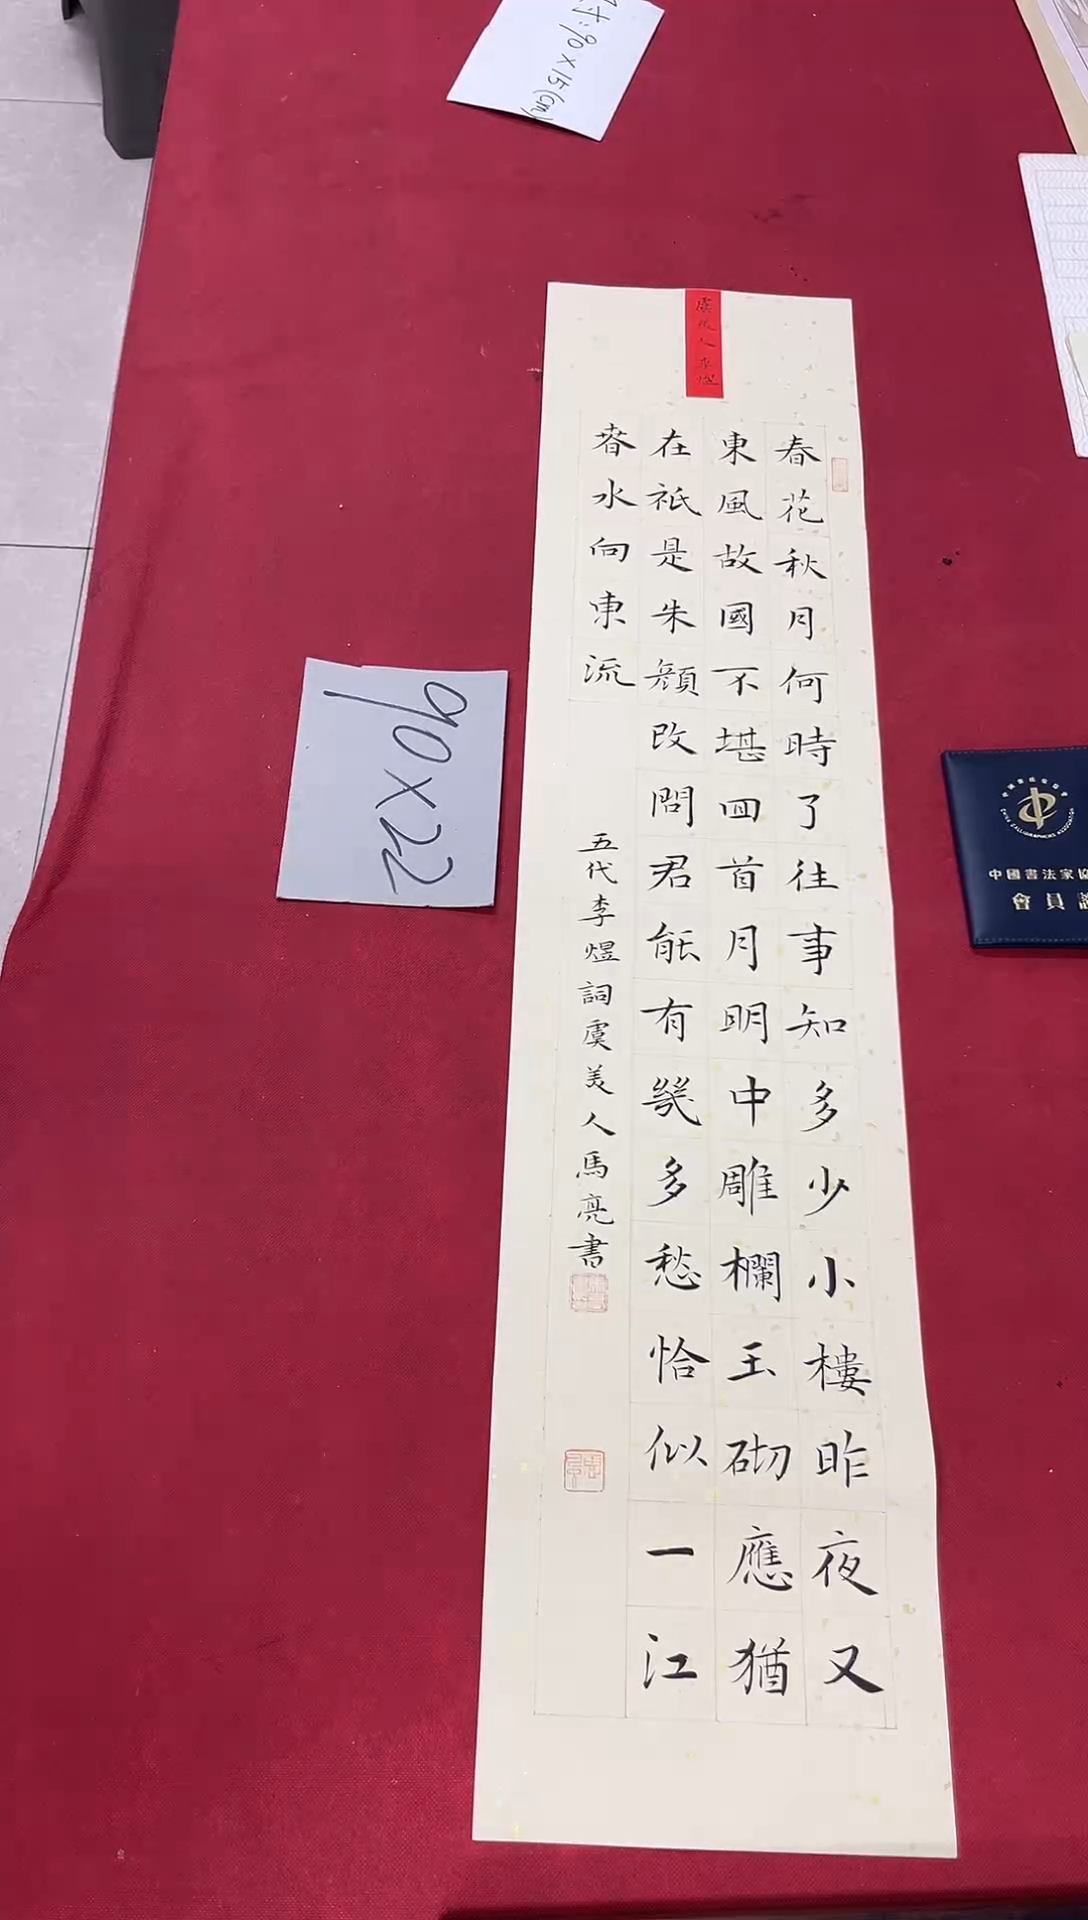 寸:90×15(cm)
虞美人 李煜
春花秋月何時了往事知多少小樓昨夜又
東風故國不堪囬首月明中雕欄玉砌應猶
在祇是朱顏改問君能有幾多愁恰似一江
春水向東流
五代李煜詞虞美人馬亮書
90×22
CHINA CALLIGRAPHERS ASSOCIATION
中國書法家協
會員證